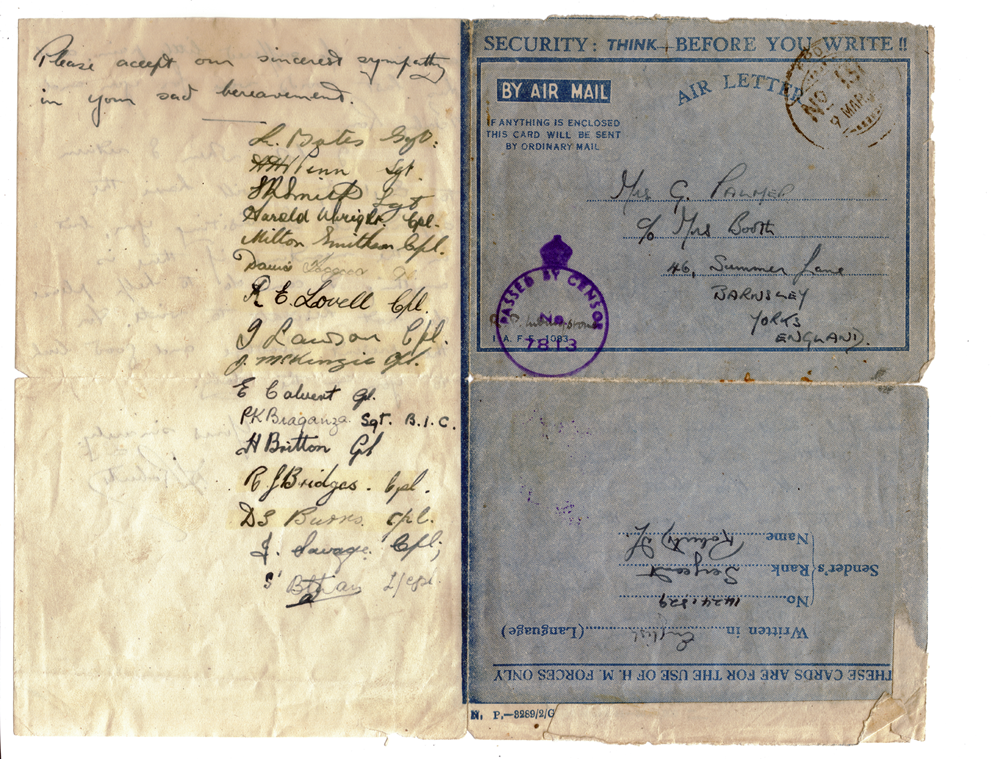 Please accept our sincerest sympathy
in your sad bereavement.
L. Bates Sgt.
Penn Sgt.
Smith Sgt
Harold Wright. Cpl.
Milton Smitham Cpl.
R. E. Lovell Cpl.
J Lawson Cpl.
J. McKinzie Cpl.
E Calvert Cpl.
P.K Braganza. Sgt. B.I.C.
H Britton Cpl
R J Bridges. Cpl.
DS Burrs. Cpl.
J. Savage. Cpl;
S L/Cpl.
SECURITY: THINK BEFORE YOU WRITE !!
BY AIR MAIL
AIR LETTER
IF ANYTHING IS ENCLOSED
THIS CARD WILL BE SENT
BY ORDINARY MAIL
9 MAR
Mrs G. PALMER
c/o Mrs Booth
46, Summer Lane
BARNSLEY
YORKS
ENGLAND.
PASSED BY CENSOR
No.
7813
I. A. F. 1093
Name Roberts H.
Sender's Rank Sergeant
No. 14241329
Written in English (Language)
THESE CARDS ARE FOR THE USE OF H. M. FORCES ONLY
N. P.—8269/2/G